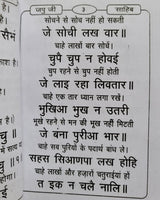 जपु जी ३ साहिब
सोचने से सोच नहीं हो सकती
जे सोची लख वार ॥
चाहे लाखों बार सोचें।
चुपै चुप न होवई
चुप रहने से चुप नहीं होती
जे लाइ रहा लिवतार ॥
चाहे एक तार ध्यान लगा रखे।
भुखिआ भुख न उतरी
भूखे रहने से भूख नहीं मिटती
जे बंना पुरीआ भार ॥
चाहे सब पुरियों के पदार्थ बांध ले।
सहस सिआणपा लख होहि
चाहे लाखों और हज़ारों चतुराईयां हों
त इक न चलै नालि ॥